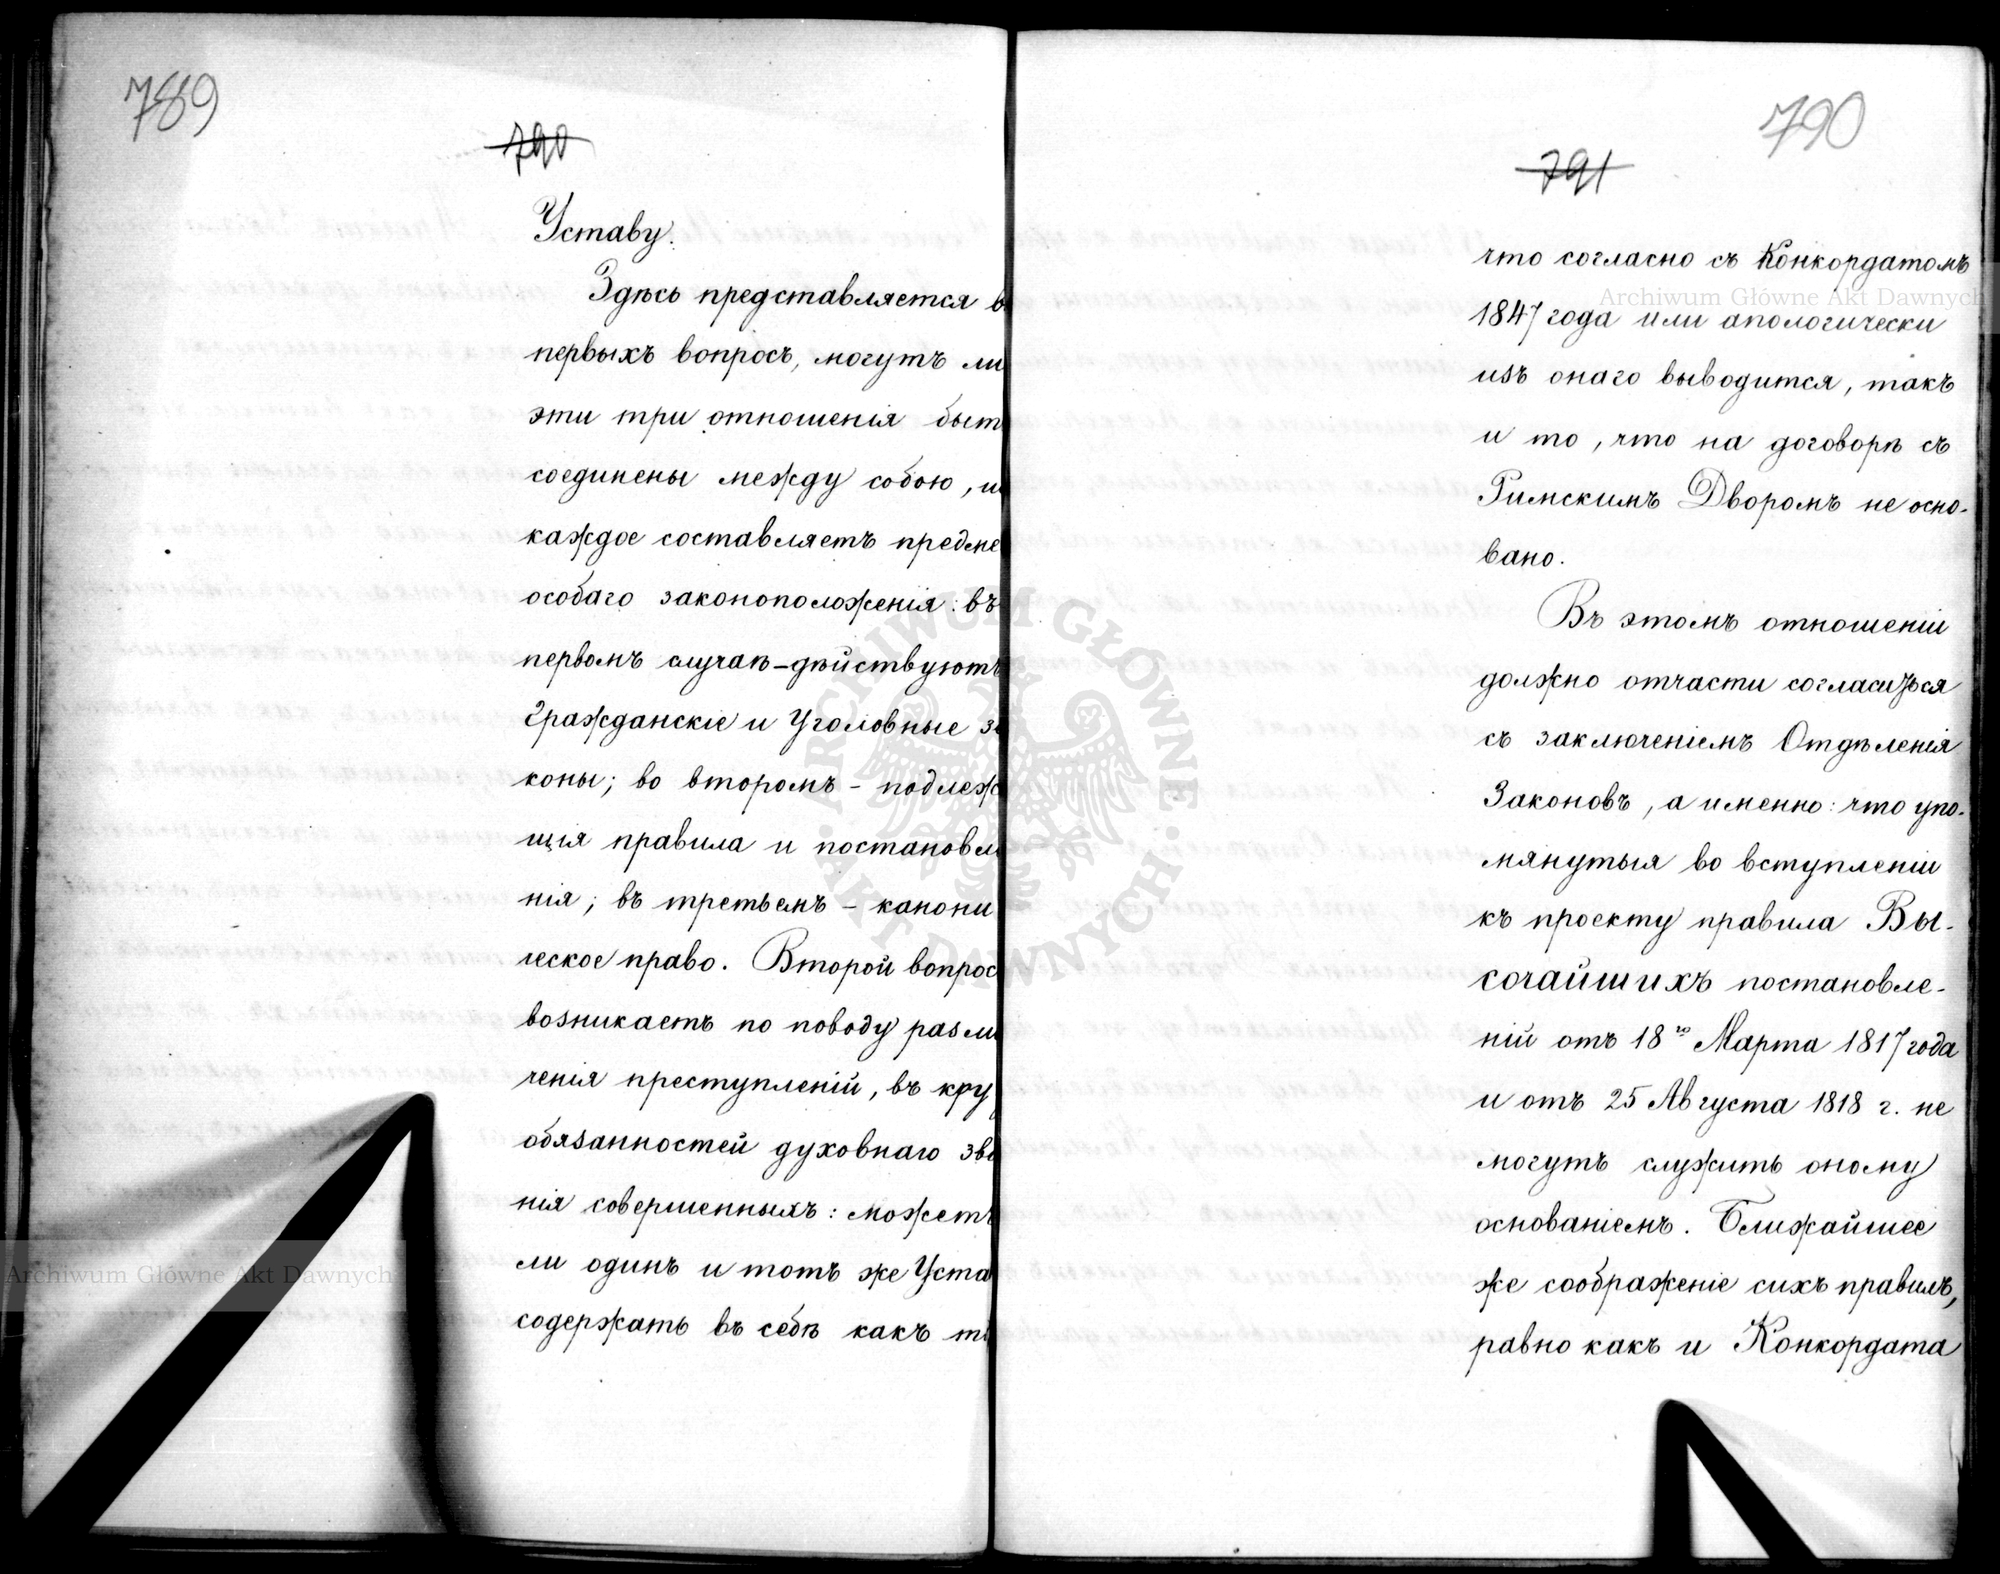 789
790
Уставу.
Здѣсь представляется в
первыхъ вопросъ, могутъ ли
эти три отношенія быт
соединены между собою, и
каждое составляетъ предме
особаго законоположенія: въ
первомъ случаѣ – дѣйствуютъ
Гражданскіе и Уголовные за
коны; во второмъ – подлеж
щія правила и постановле
нія; въ третьемъ – канони
ческое право. Второй вопрос
возникаетъ по поводу разли
ченія преступленій, въ кру
обязанностей духовнаго зва
нія совершенныхъ: можетъ
ли одинъ и тотъ же Уста
содержать въ себѣ какъ т
790
791
что согласно съ Конкордатомъ
1847 года или апологически
изъ онаго выводится, такъ
и то, что на договорѣ съ
Римскимъ Дворомъ не осно-
вано.
Въ этомъ отношеніи
должно отчасти согласиться
съ заключеніемъ Отдѣленія
Законовъ, а именно: что упо-
мянутыя во вступленіи
къ проекту правила Вы-
сочайшихъ постановле-
ній отъ 18го Марта 1817 года
и отъ 25 Августа 1818 г. не
могутъ служить оному
основаніемъ. Ближайшее
же соображеніе сихъ правилъ,
равно какъ и Конкордата
Archiwum Główne Akt Dawnych
Archiwum Główne Akt Dawnych
ARCHIWUM GŁÓWNE · AKT DAWNYCH ·